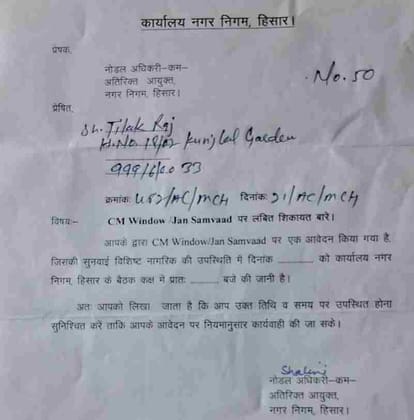 कार्यालय नगर निगम, हिसार।
प्रेषक,
नोडल अधिकरी-कम-
अतिरिक्त आयुक्त,
नगर निगम, हिसार।
No. 50
प्रेषित,
Sh. Tilak Raj
H.No. 18/02 Kunj Lal Garden
क्रमांक: 452/AC/MCH दिनांक: 21/AC/MCH
विषय:- CM Window /Jan Samvaad पर लंबित शिकायत बारे।
आपके द्वारा CM Window/Jan Samvaad पर एक आवेदन किया गया है,
जिसकी सुनवाई विशिष्ट नागरिक की उपस्थिति में दिनांक ________ को कार्यालय नगर
निगम, हिसार के बैठक कक्ष मे प्रातः ______ बजे की जानी है।
अतः आपको लिखा जाता है कि आप उक्त तिथि व समय पर उपस्थित होना
सुनिश्चित करें ताकि आपके आवेदन पर नियमानुसार कार्यवाही की जा सके।
Shalini
नोडल अधिकारी-कम-
अतिरिक्त आयुक्त,
नगर निगम, हिसार।